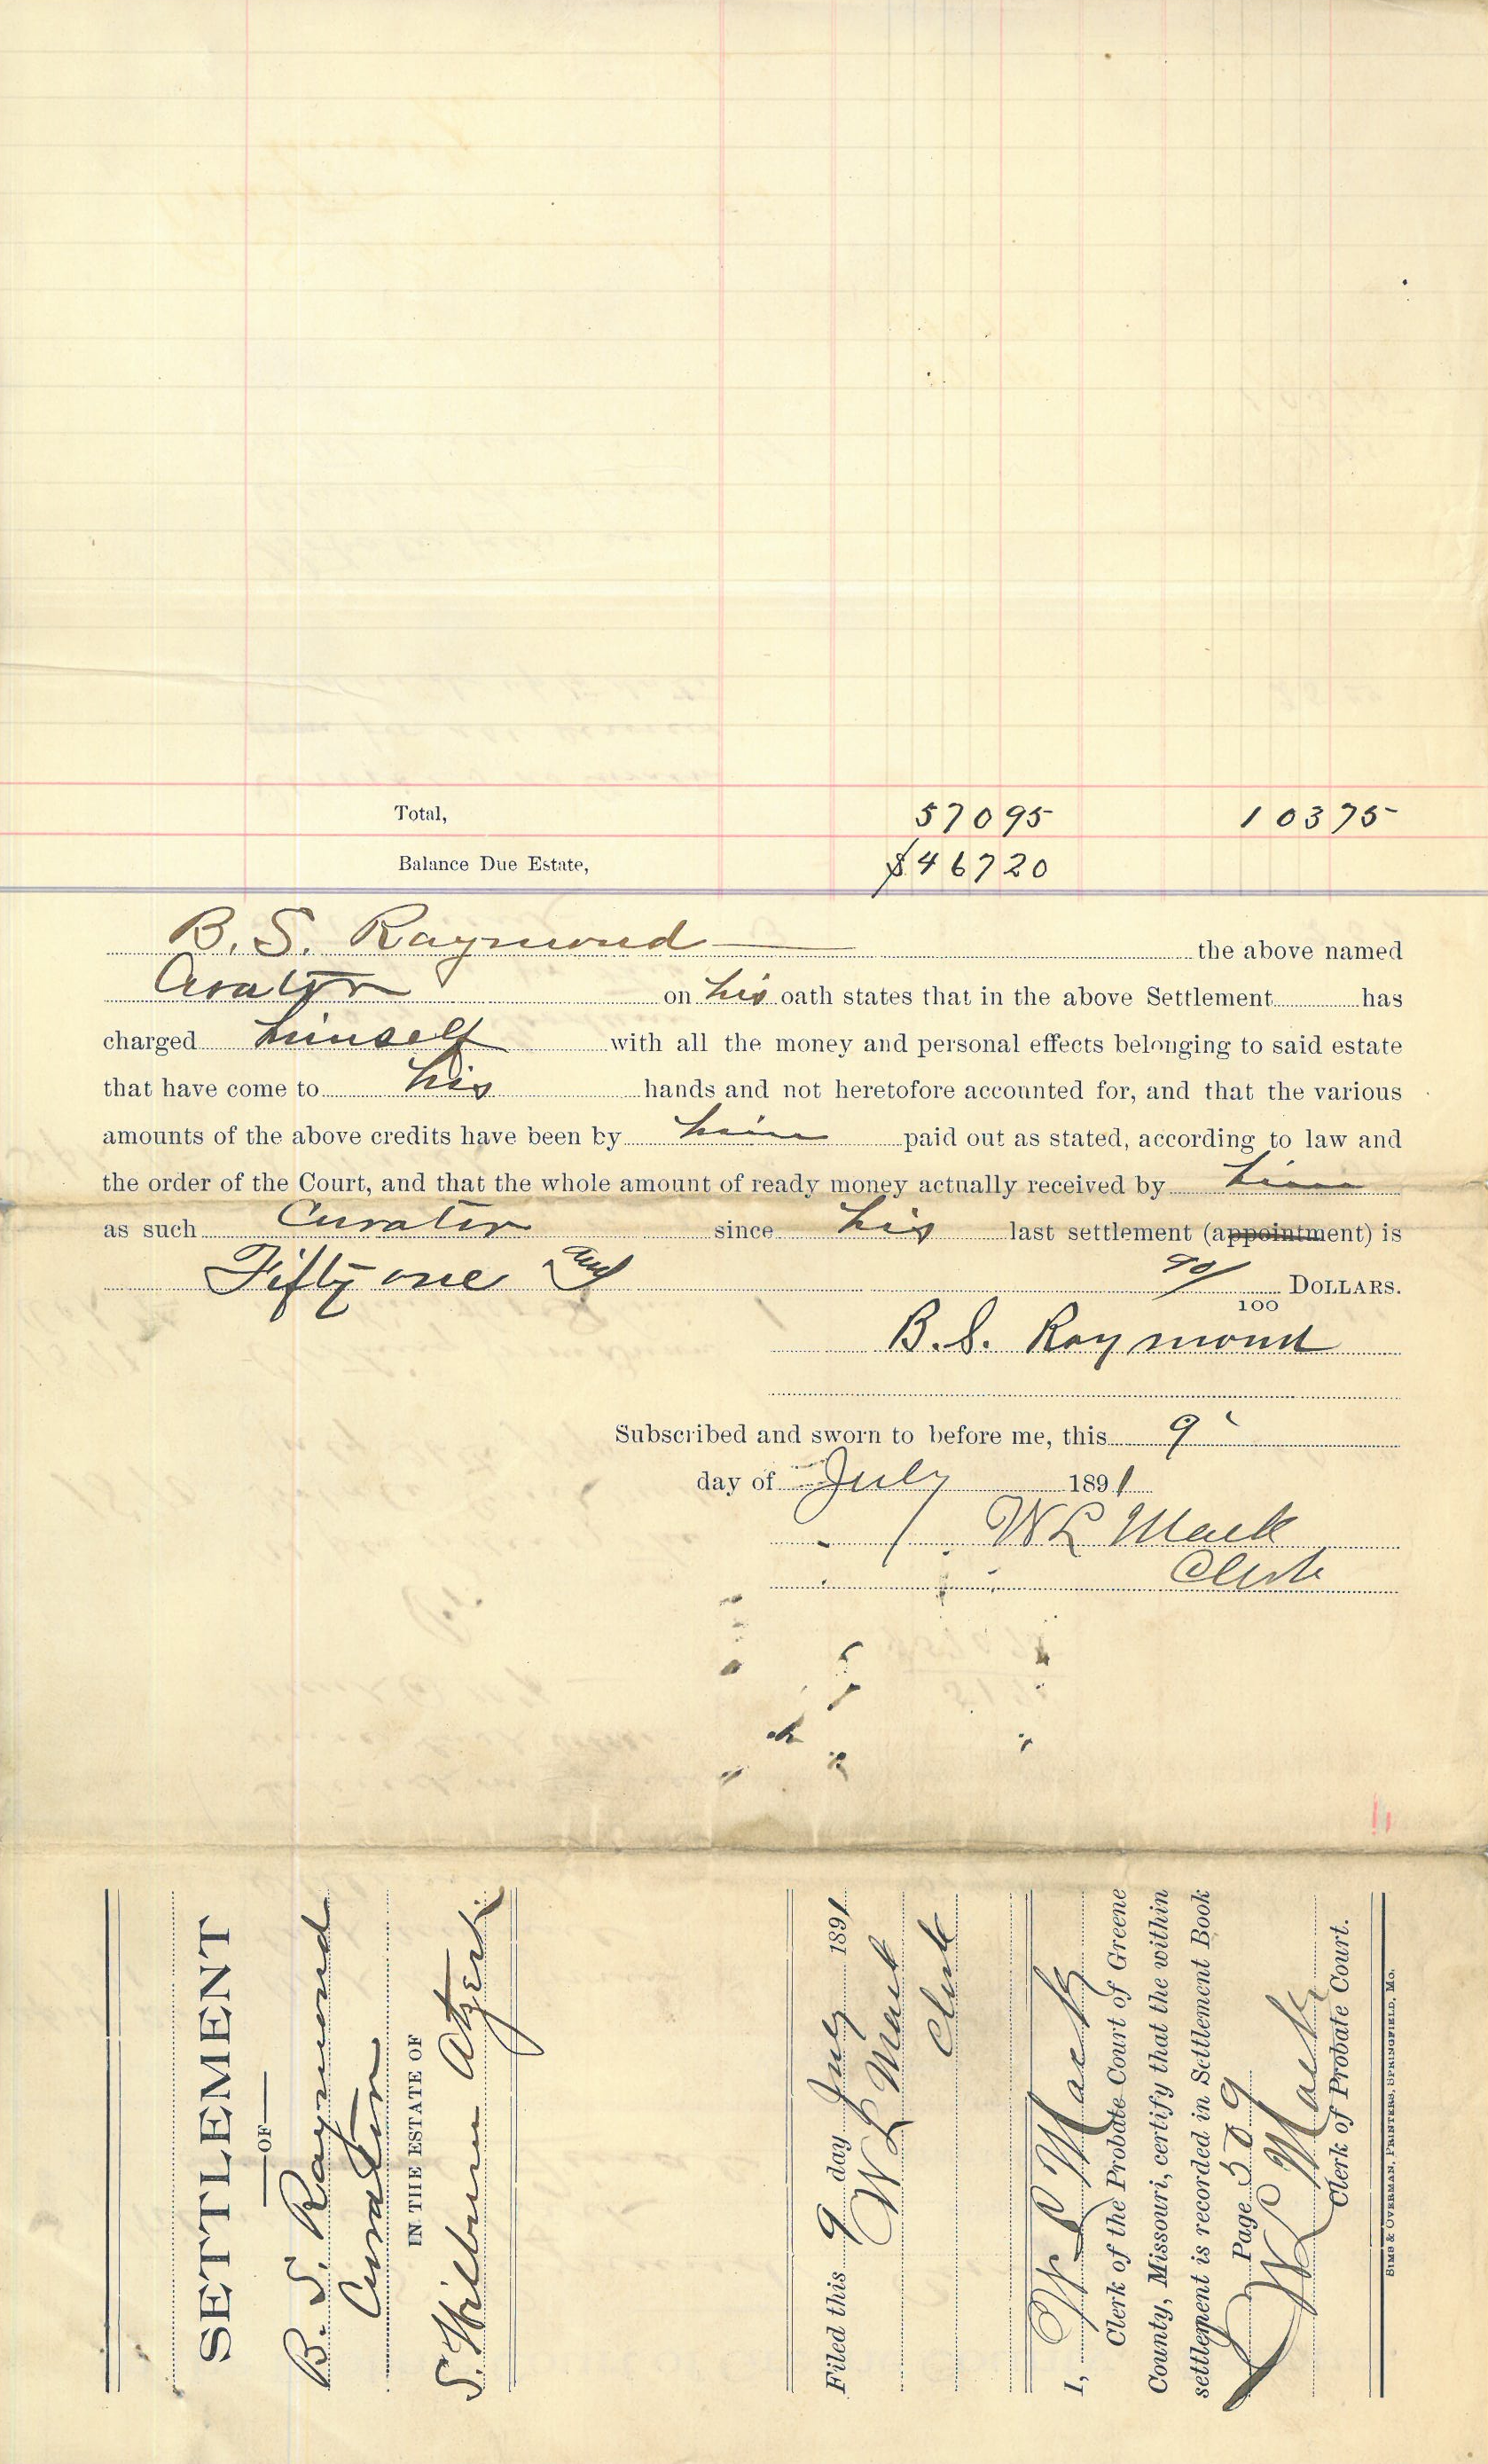 Total, 57095 10375
Balance Due Estate, $46720
B. S. Raymond the above named
Curator on his oath states that in the above Settlement has
charged himself with all the money and personal effects belonging to said estate
that have come to his hands and not heretofore accounted for, and that the various
amounts of the above credits have been by him paid out as stated, according to law and
the order of the Court, and that the whole amount of ready money actually received by him
as such Curator since his last settlement (appointment) is
Fifty one and 90/100 DOLLARS.
B. S. Raymond
Subscribed and sworn to before me, this 9
day of July 1891
W L Mack
Clerk
SETTLEMENT
OF
B. S. Raymond
Curator
IN THE ESTATE OF
S. Wilburn Atzert
Filed this 9 day July 1891
W L Mack
Clerk
I, W L Mack
Clerk of the Probate Court of Greene
County, Missouri, certify that the within
settlement is recorded in Settlement Book
Page 509
W L Mack
Clerk of Probate Court.
SIMS & OVERMAN, PRINTERS, SPRINGFIELD, MO.